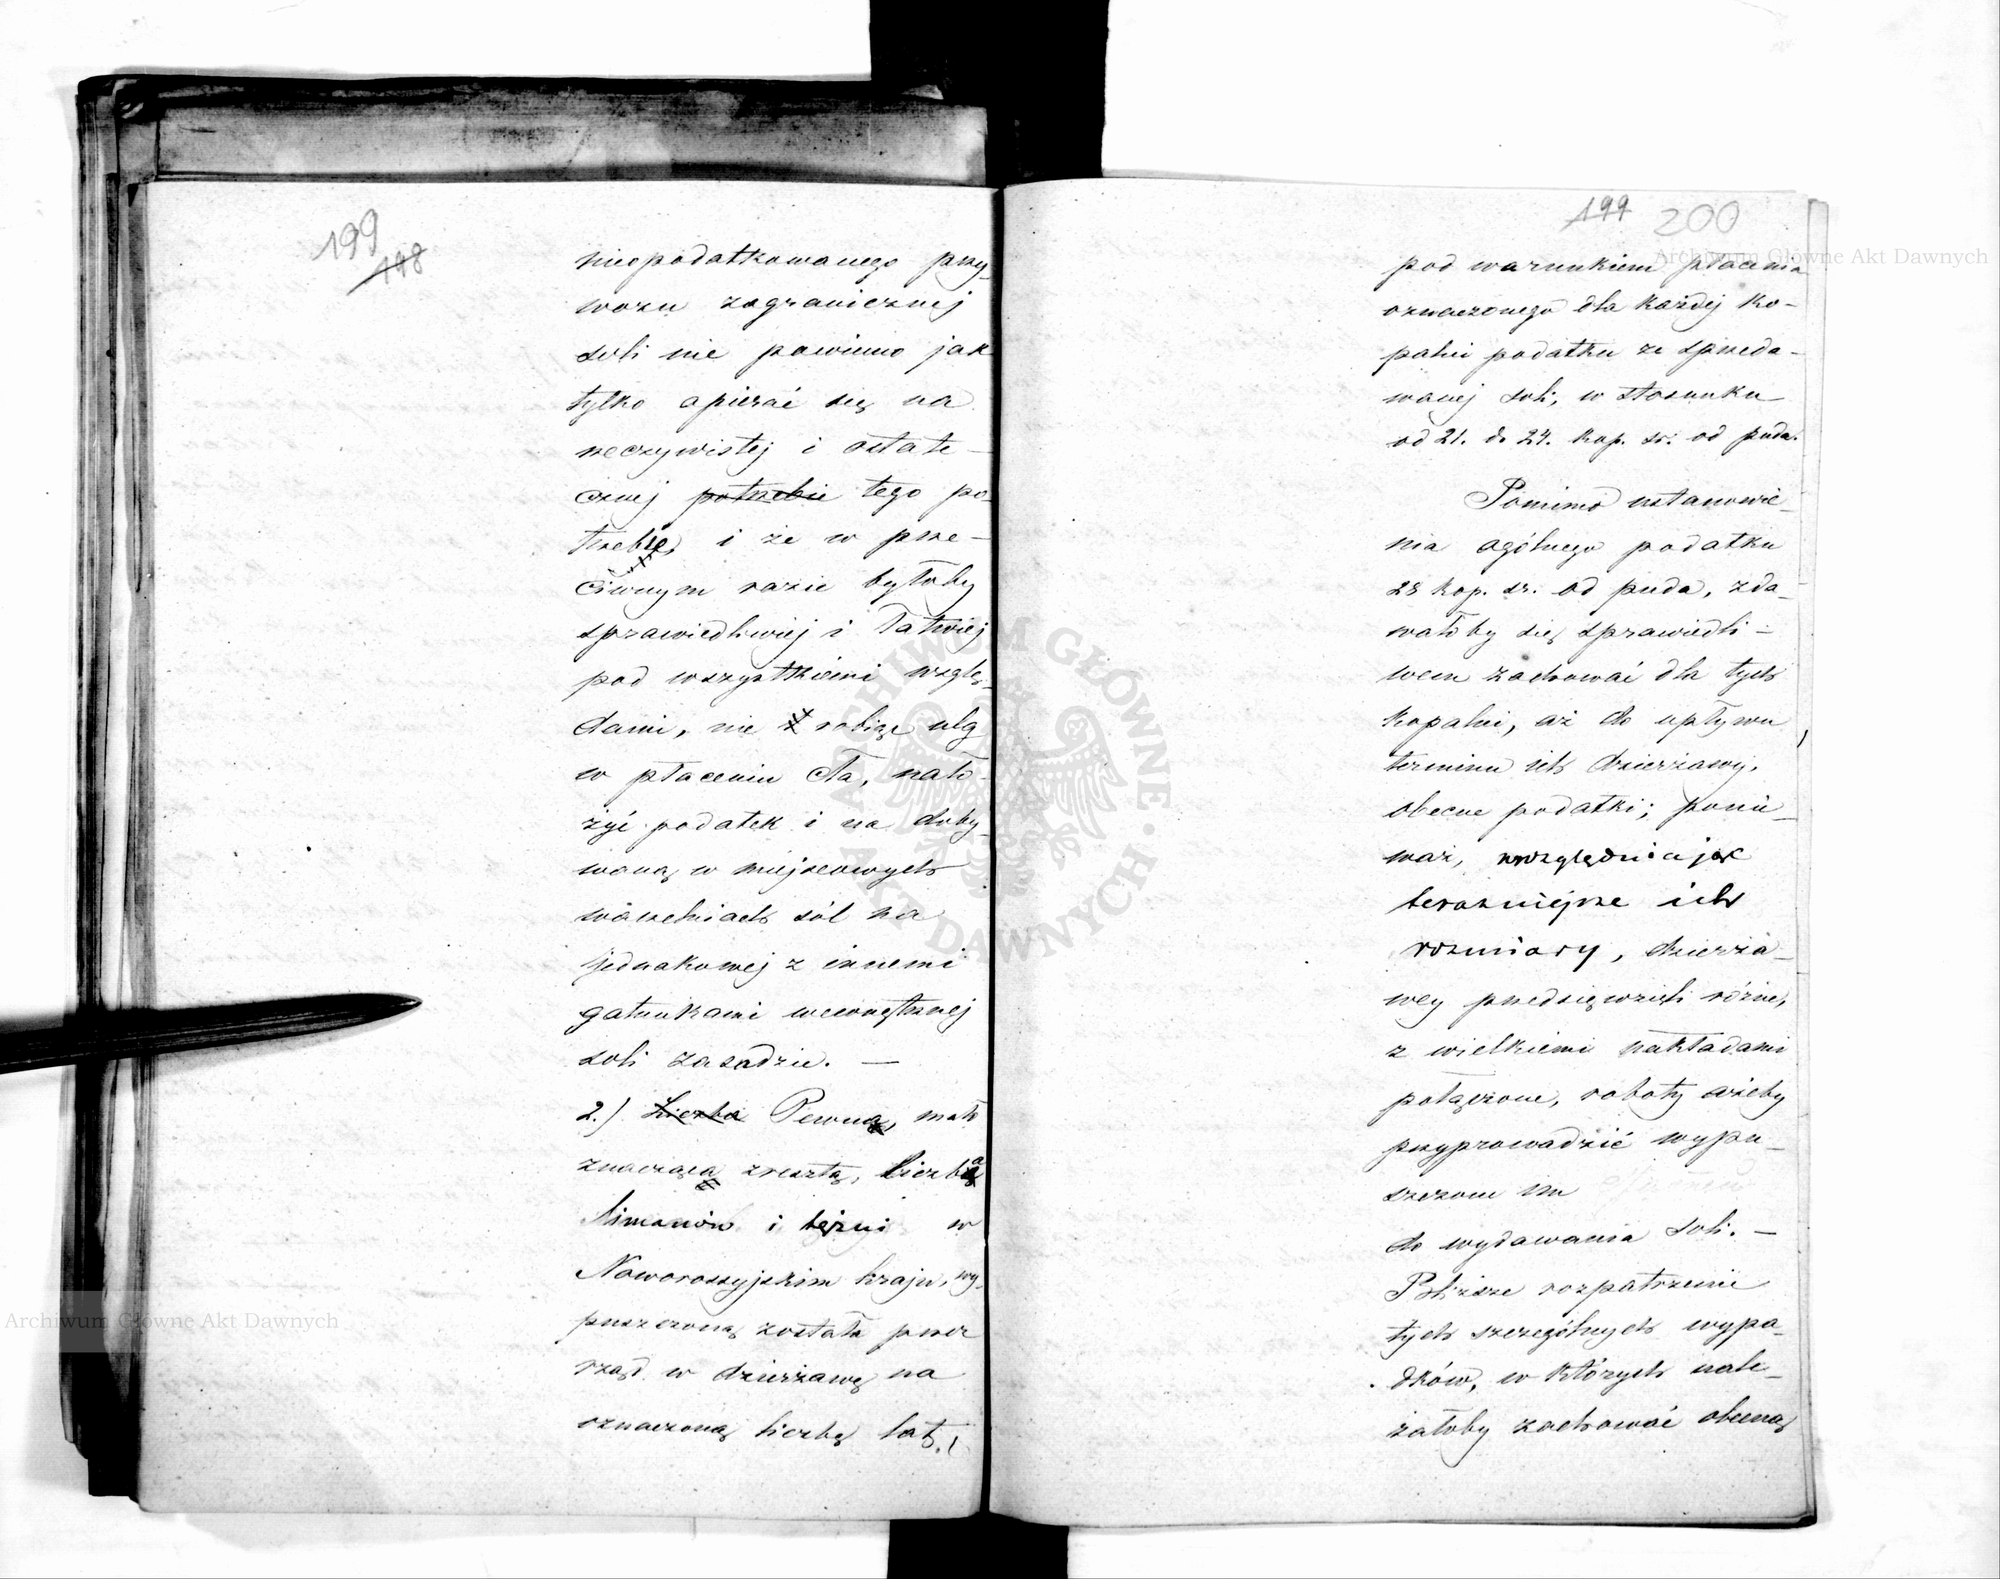 199
198
nieopodatkowanego przy-
wozu zagranicznej
soli nie powinno jak
tylko opierać się na
rzeczywistej i ostate-
cznej potrzebie tego po-
trzebie, i że w prze-
ciwnym razie byłoby
sprawiedliwiej i łatwiej
pod wszystkiemi wzglę-
dami, nie robiąc ulg
w płaceniu cła, nało-
żyć podatek i na doby-
waną w miejscowych
warzelniach sól na
jednakowej z innemi
gatunkami wewnętrznej
soli zasadzie. —
2.) Liczba Pewna, mało
znacząca zresztą, liczba
limanów i tężni w
Noworossyjskim kraju, wy-
puszczoną została przez
rząd w dzierżawę na
oznaczoną liczbę lat,
199 200
pod warunkiem płacenia
oznaczonego dla każdej ko-
palni podatku ze sprzeda-
wanej soli, w stosunku
od 21. do 24. kop. sr. od puda.
Pomimo ustanowie-
nia ogólnego podatku
28 kop. sr. od puda, zda-
wałoby się sprawiedli-
wem zachować dla tych
kopalni, aż do upływu
terminu ich dzierżawy,
obecne podatki; ponie-
waż, uwzględniając
teraźniejsze ich
rozmiary, dzierża-
wcy przedsięwzięli różne,
z wielkiemi nakładami
połączone, roboty ażeby
przyprowadzić wypu-
szczone im
do wydawania soli. —
Bliższe rozpatrzenie
tych szczególnych wypa-
dków, w których nale-
żałoby zachować obecną
Archiwum Główne Akt Dawnych
Archiwum Główne Akt Dawnych
ARCHIWUM GŁÓWNE AKT DAWNYCH